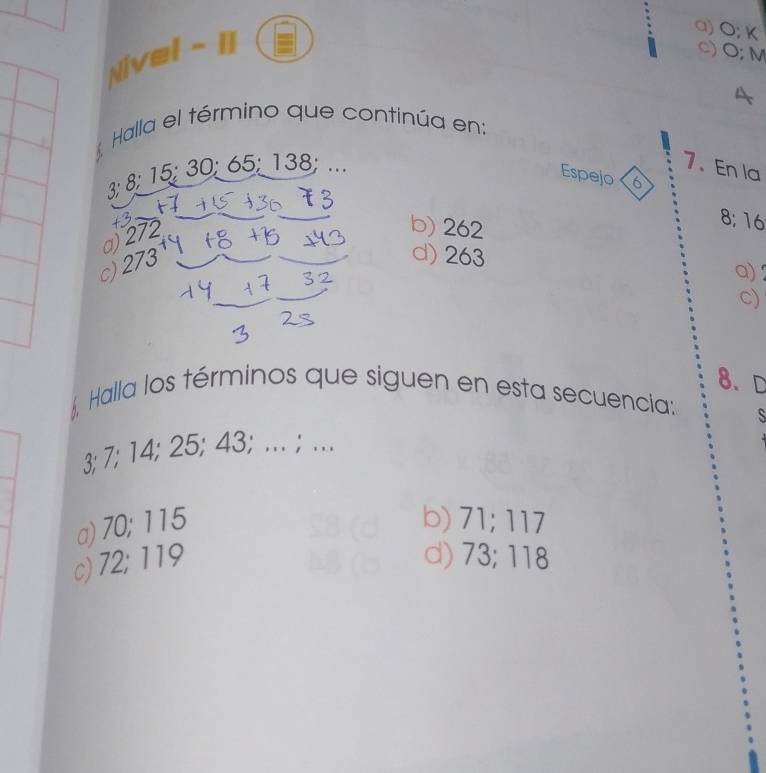 Nivel - II
5. Halla el término que continúa en:
3; 8; 15; 30; 65; 138; ...
+3 +7 +15 +30 73
a) 272
b) 262
+4 +8 +15 +43
c) 273
d) 263
+4 +7 32
3 25
Espejo 6
6. Halla los términos que siguen en esta secuencia:
3; 7; 14; 25; 43; ... ; ...
a) 70; 115
b) 71; 117
c) 72; 119
d) 73; 118
a) O; K
c) O; M
A
7. En la
8; 16
a)
c)
8. D
s